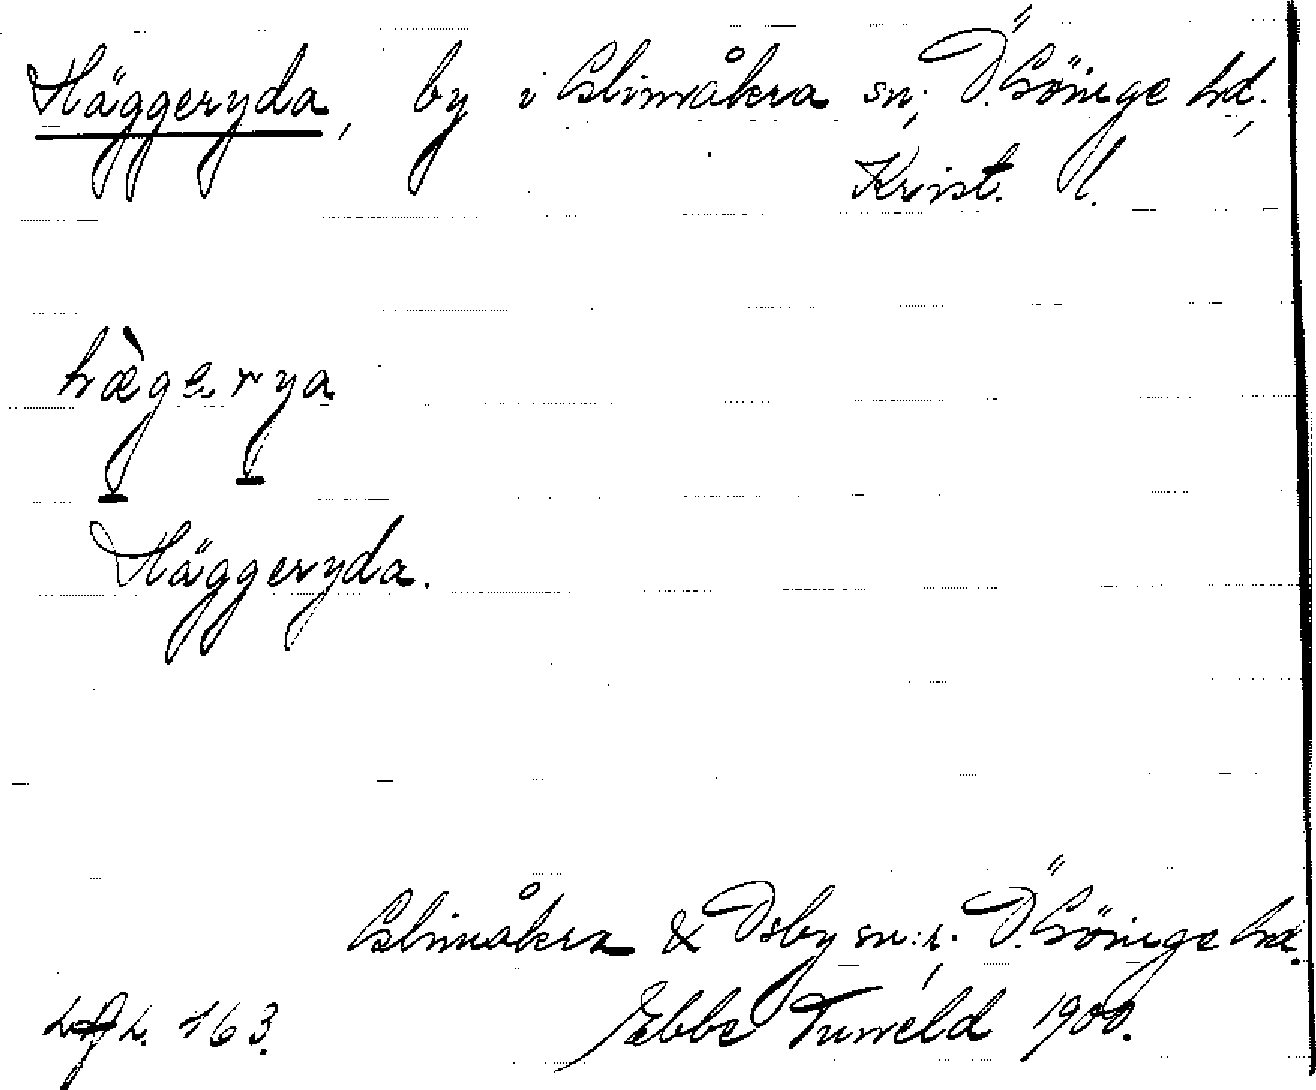 Häggeryda, by i Glimåkra sn, Ö. Göinge hd,
Krist. l.
hægerya
Häggeryda.
Glimåkra & Osby sn:r. Ö. Göinge hd.
163. Ebbe Tuneld 1900.